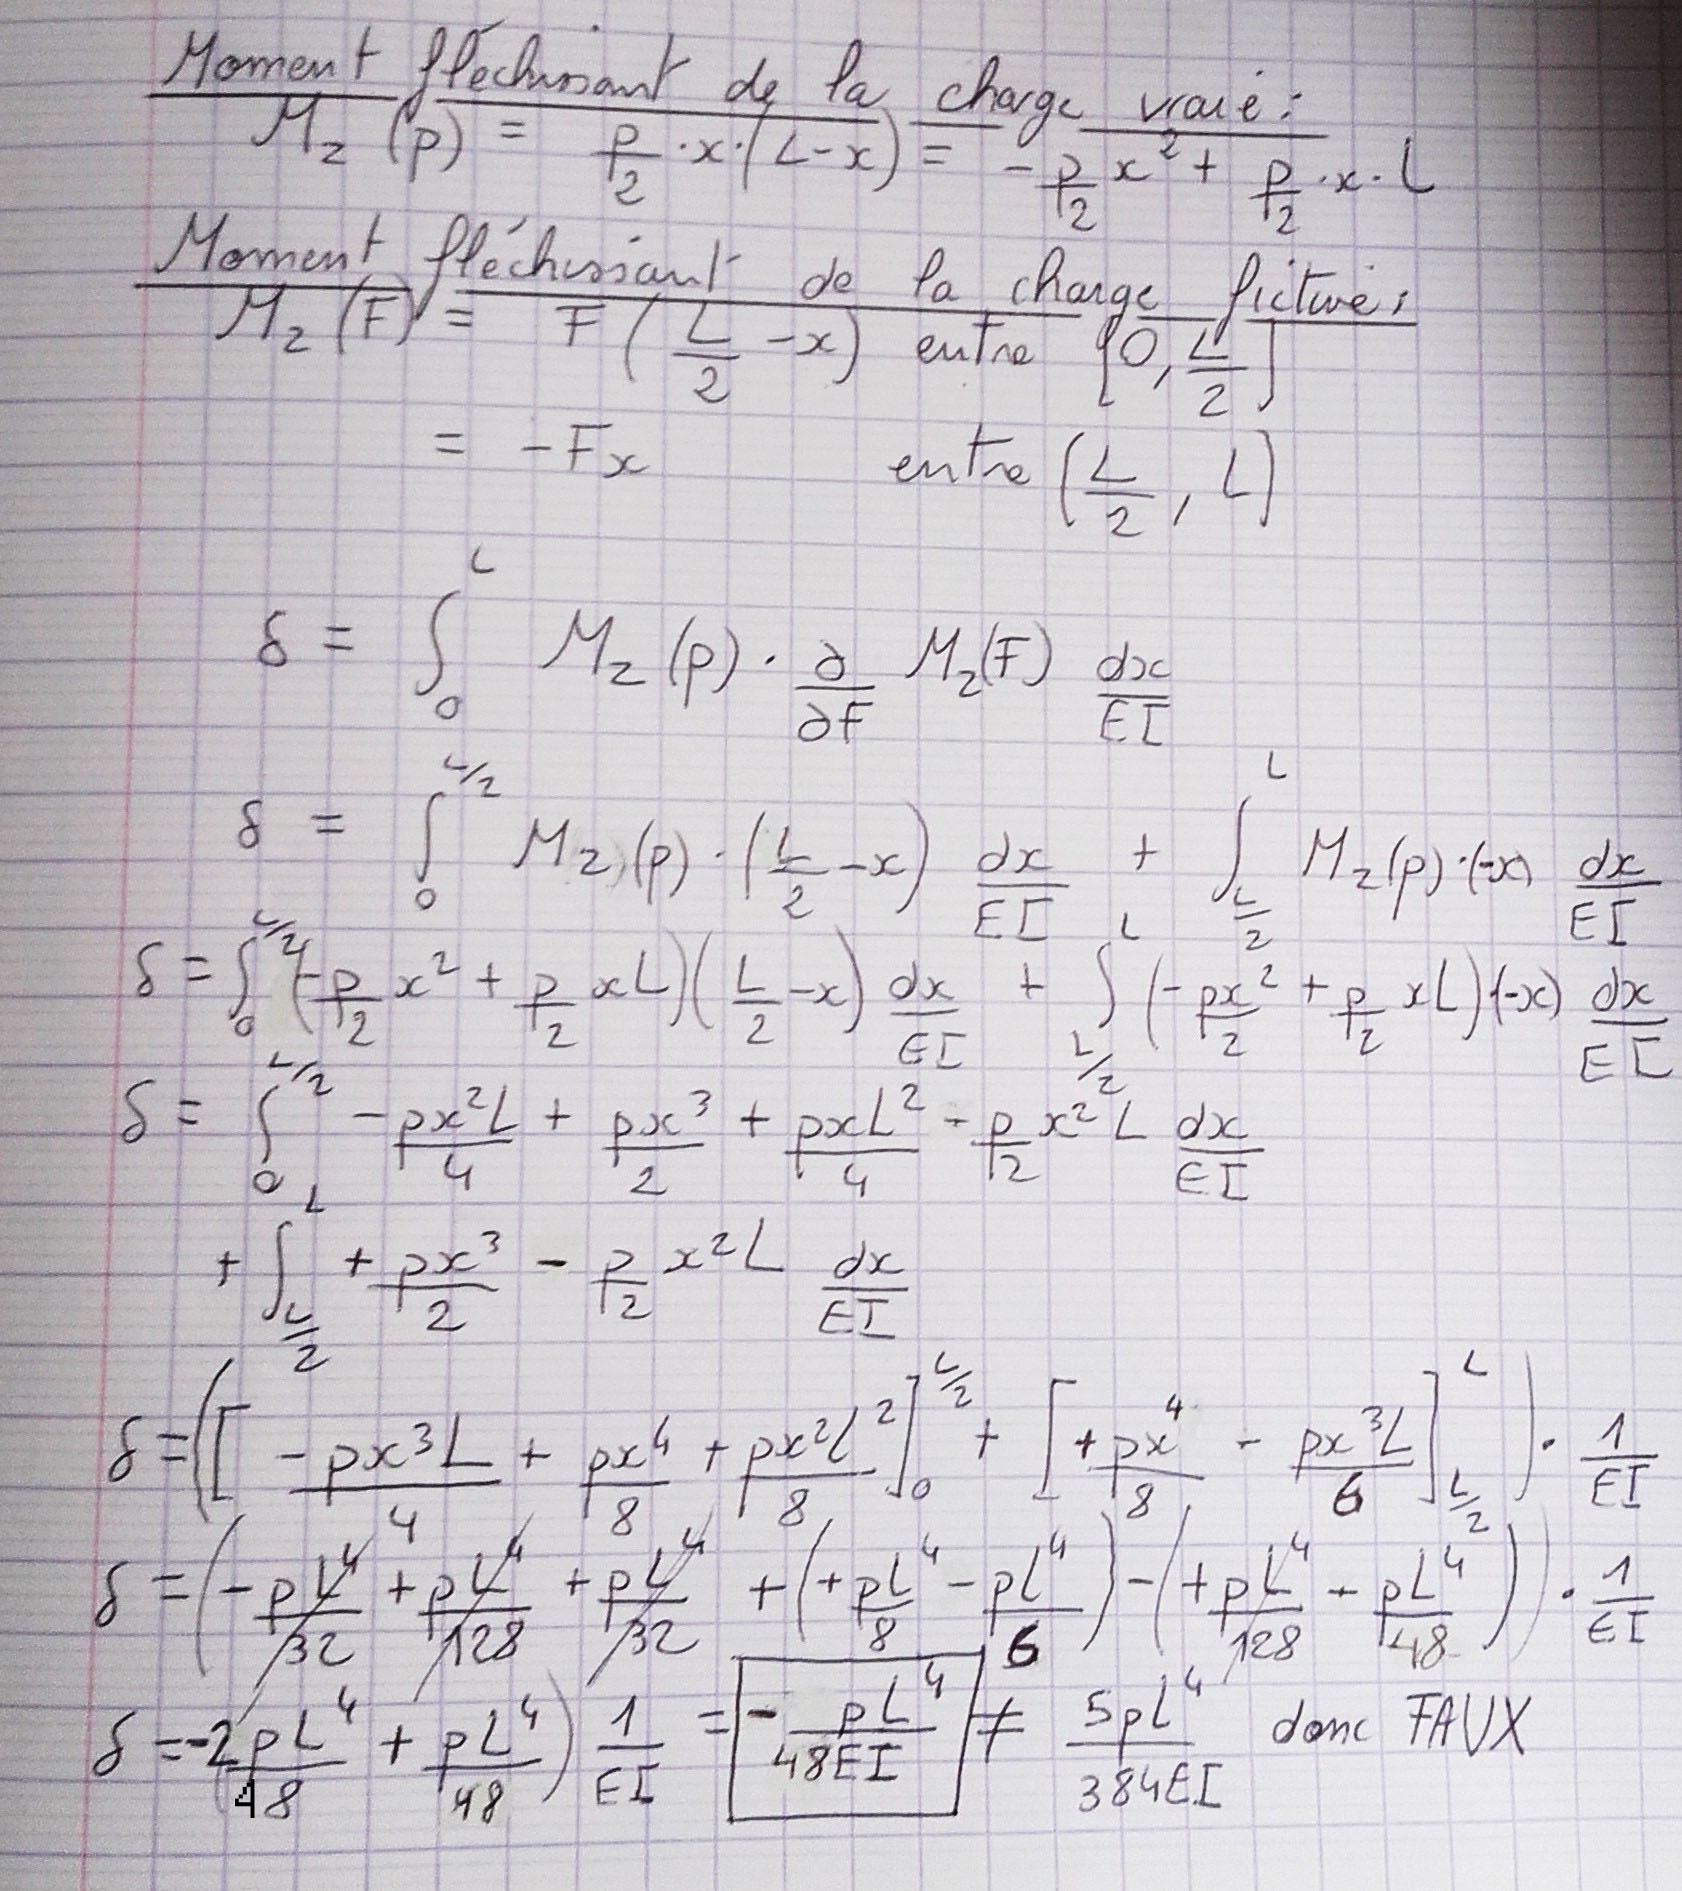 Moment fléchissant de la charge vraie :
M_z (p) = p/2 · x · (L-x) = - p/2 x² + p/2 · x · L
Moment fléchissant de la charge fictive :
M_z (F) = F ( L/2 - x) entre [0, L/2]
= -Fx entre (L/2, L)
δ = ∫_0^L M_z (p) · ∂/∂F M_z(F) dx/EI
δ = ∫_0^{L/2} M_z (p) · (L/2 - x) dx/EI + ∫_{L/2}^L M_z (p) · (-x) dx/EI
δ = ∫_0^{L/2} (-p/2 x² + p/2 xL)(L/2 - x) dx/EI + ∫_{L/2}^L (-px²/2 + p/2 xL)·(-x) dx/EI
δ = ∫_0^{L/2} - px²L/4 + px³/2 + pxL²/4 - p/2 x²L dx/EI
+ ∫_{L/2}^L + px³/2 - p/2 x²L dx/EI
δ = ([ - px³L/4 + px⁴/8 + px²L²/8 ]_0^{L/2} + [ + px⁴/8 - px³L/6 ]_{L/2}^L ) · 1/EI
δ = ( - pL⁴/32 + pL⁴/128 + pL⁴/32 + (+ pL⁴/8 - pL⁴/6 ) - (+ pL⁴/128 - pL⁴/48 )) · 1/EI
δ = -2pL⁴/48 + pL⁴/48 ) 1/EI = - pL⁴/48EI ≠ 5pL⁴/384EI donc FAUX